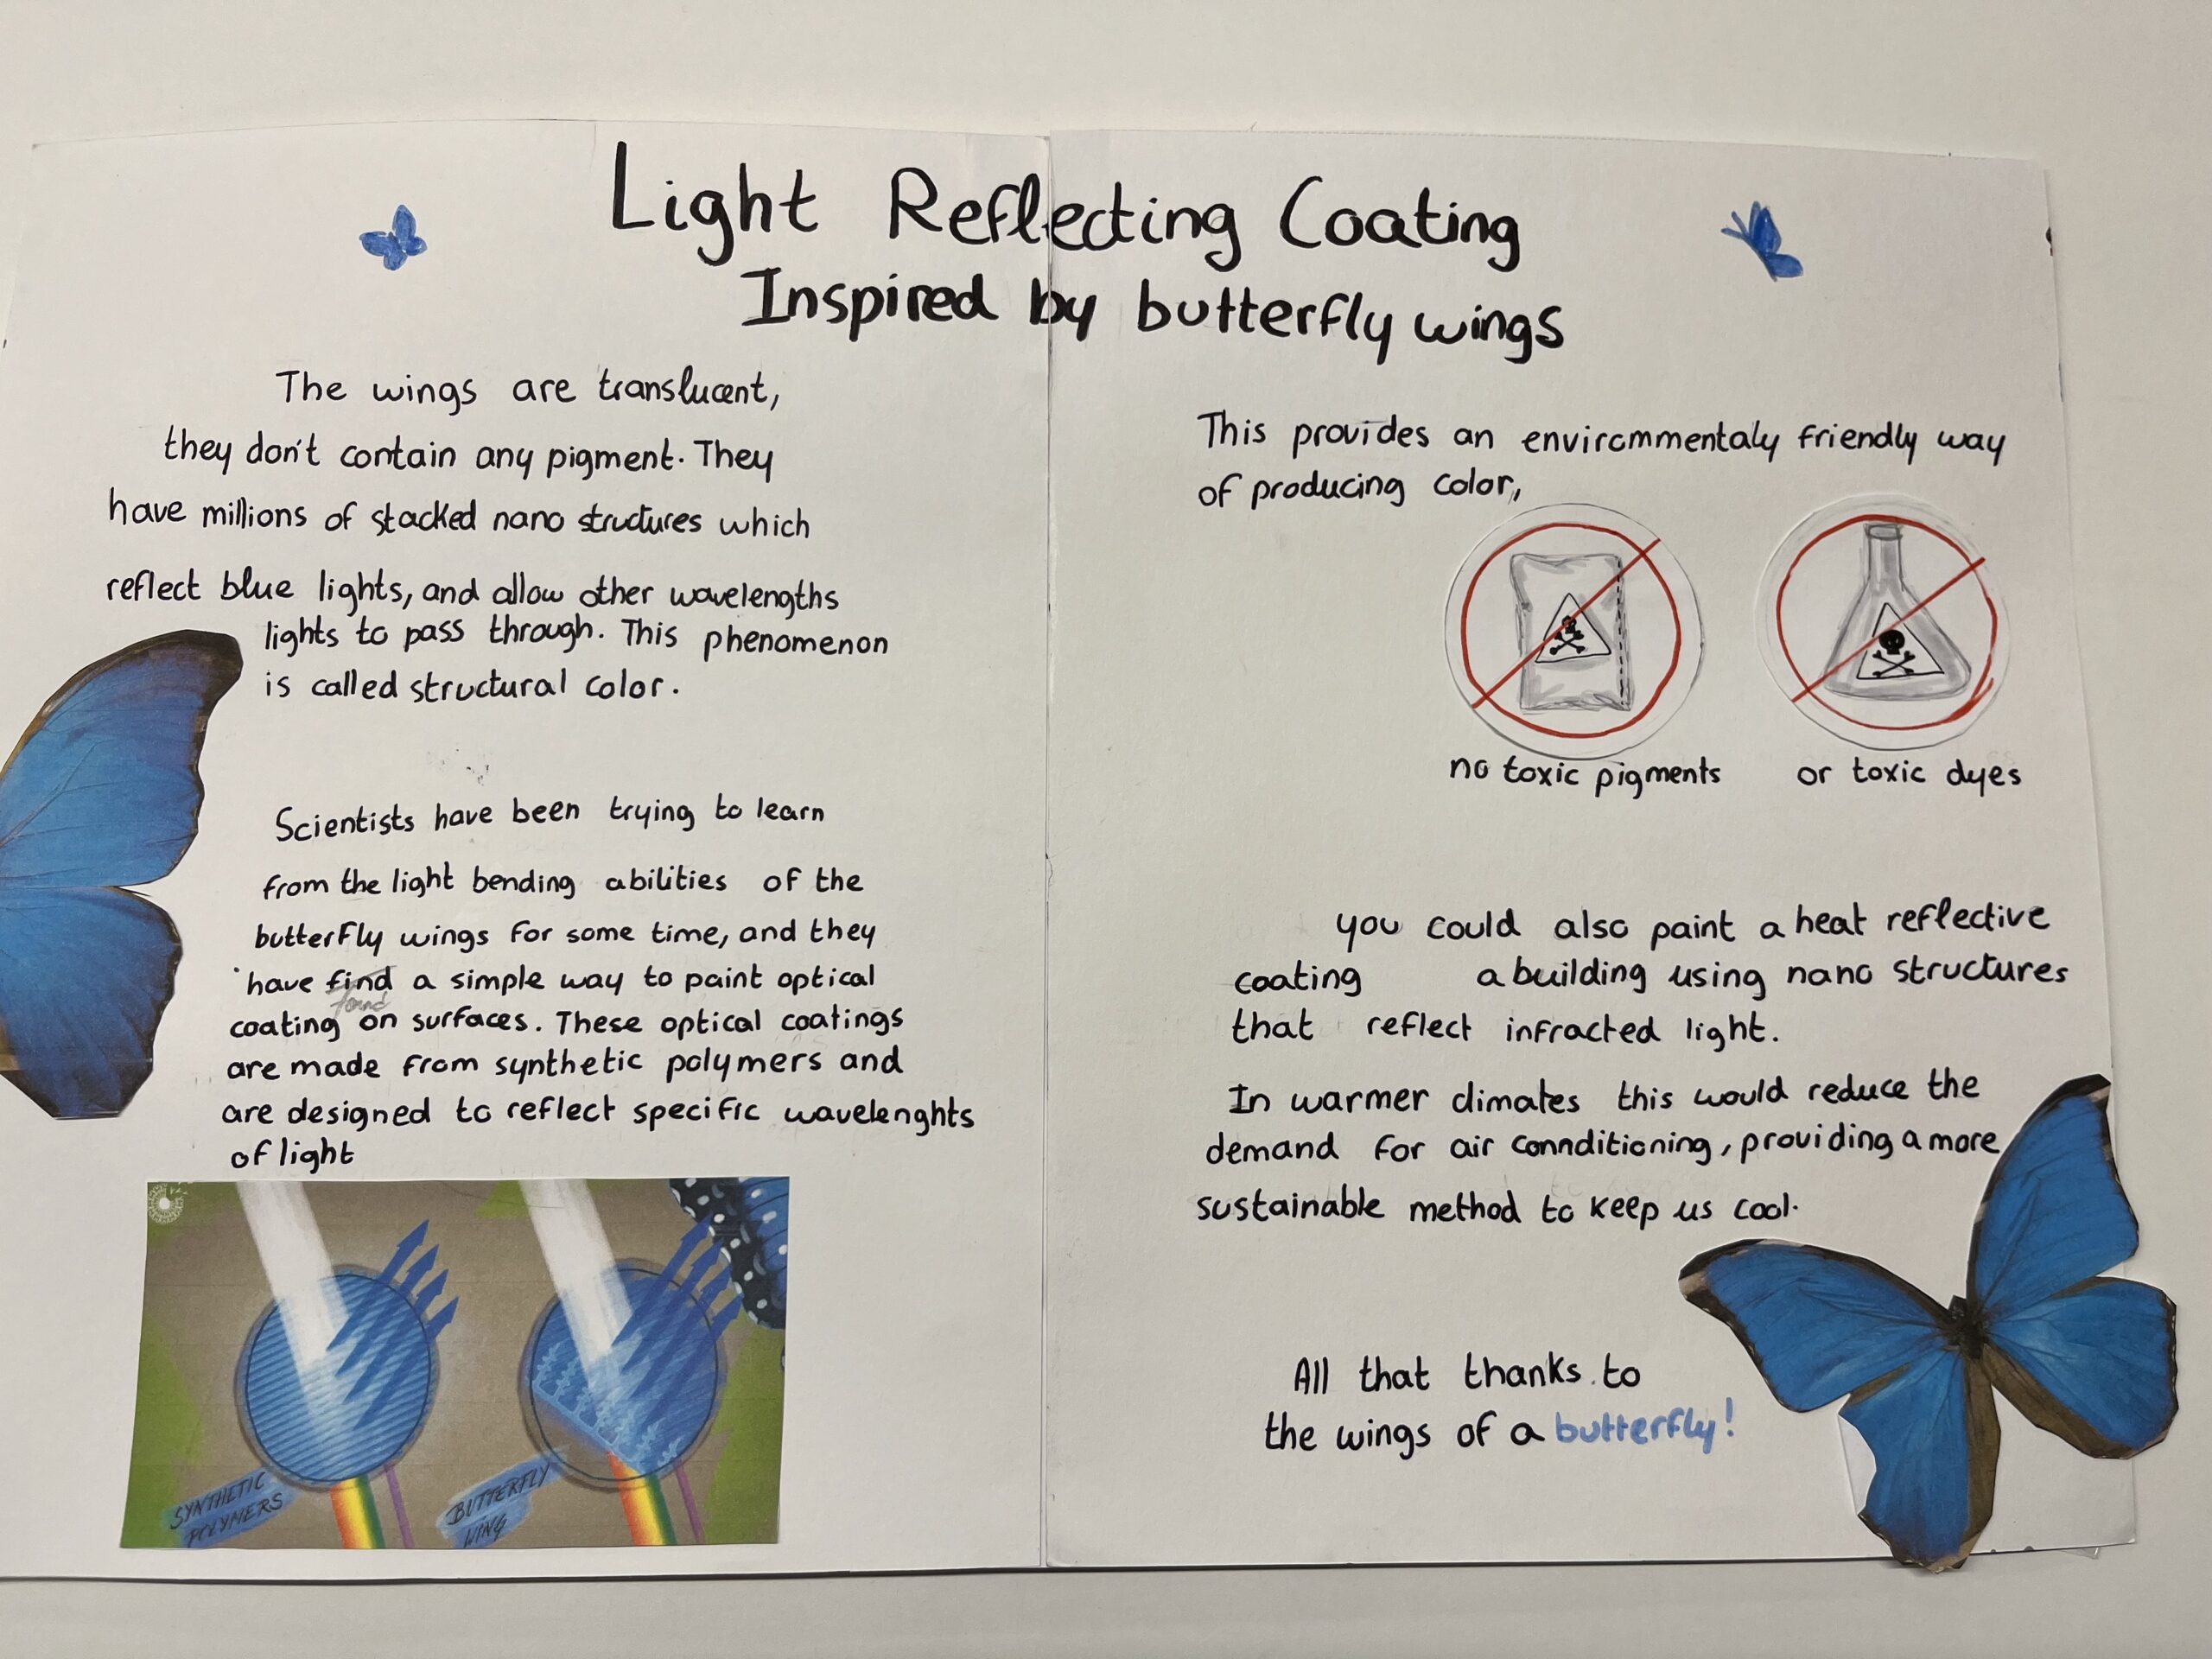 Light Reflecting Coating
Inspired by butterfly wings
The wings are translucent,
they don't contain any pigment. They
have millions of stacked nano structures which
reflect blue lights, and allow other wavelengths
lights to pass through. This phenomenon
is called structural color.
Scientists have been trying to learn
from the light bending abilities of the
butterfly wings for some time, and they
have find a simple way to paint optical
found
coating on surfaces. These optical coatings
are made from synthetic polymers and
are designed to reflect specific wavelenghts
of light
SYNTHETIC
POLYMERS
BUTTERFLY
WING
This provides an envirommentaly friendly way
of producing color,
no toxic pigments
or toxic dyes
you could also paint a heat reflective
coating a building using nano structures
that reflect infracted light.
In warmer climates this would reduce the
demand for air connditioning, providing a more
sustainable method to keep us cool.
All that thanks to
the wings of a butterfly!